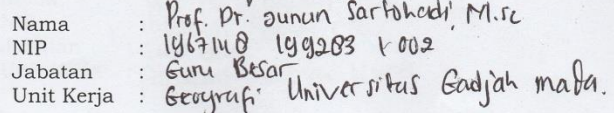 Nama : Prof. Dr. Junun Sartohadi, M.Sc
NIP : 19671148 199203 1 002
Jabatan : Guru Besar
Unit Kerja : Geografi Universitas Gadjah mada.